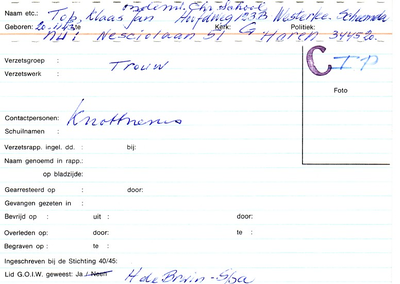 Academi. Chr. School
Naam etc.: Top, Klaas Jan Hoofdweg 123B Westerlee. Scheemda
Geboren: 20-11- te Kerk: Politiek:
nu: Nesciolaan 51 G Haren 344520.
CIP
Verzetsgroep :
Verzetswerk : Trouw
Foto
Contactpersonen: Knottnerus
Schuilnamen :
Verzetsrapp. ingel. dd. : bij:
Naam genoemd in rapp.:
op bladzijde:
Gearresteerd op : door:
Gevangen gezeten in :
Bevrijd op : uit : door:
Overleden op: door: te :
Begraven op : te :
Ingeschreven bij de Stichting 40/45:
Lid G.O.I.W. geweest: Ja / Neen H de Bruin-Slpa